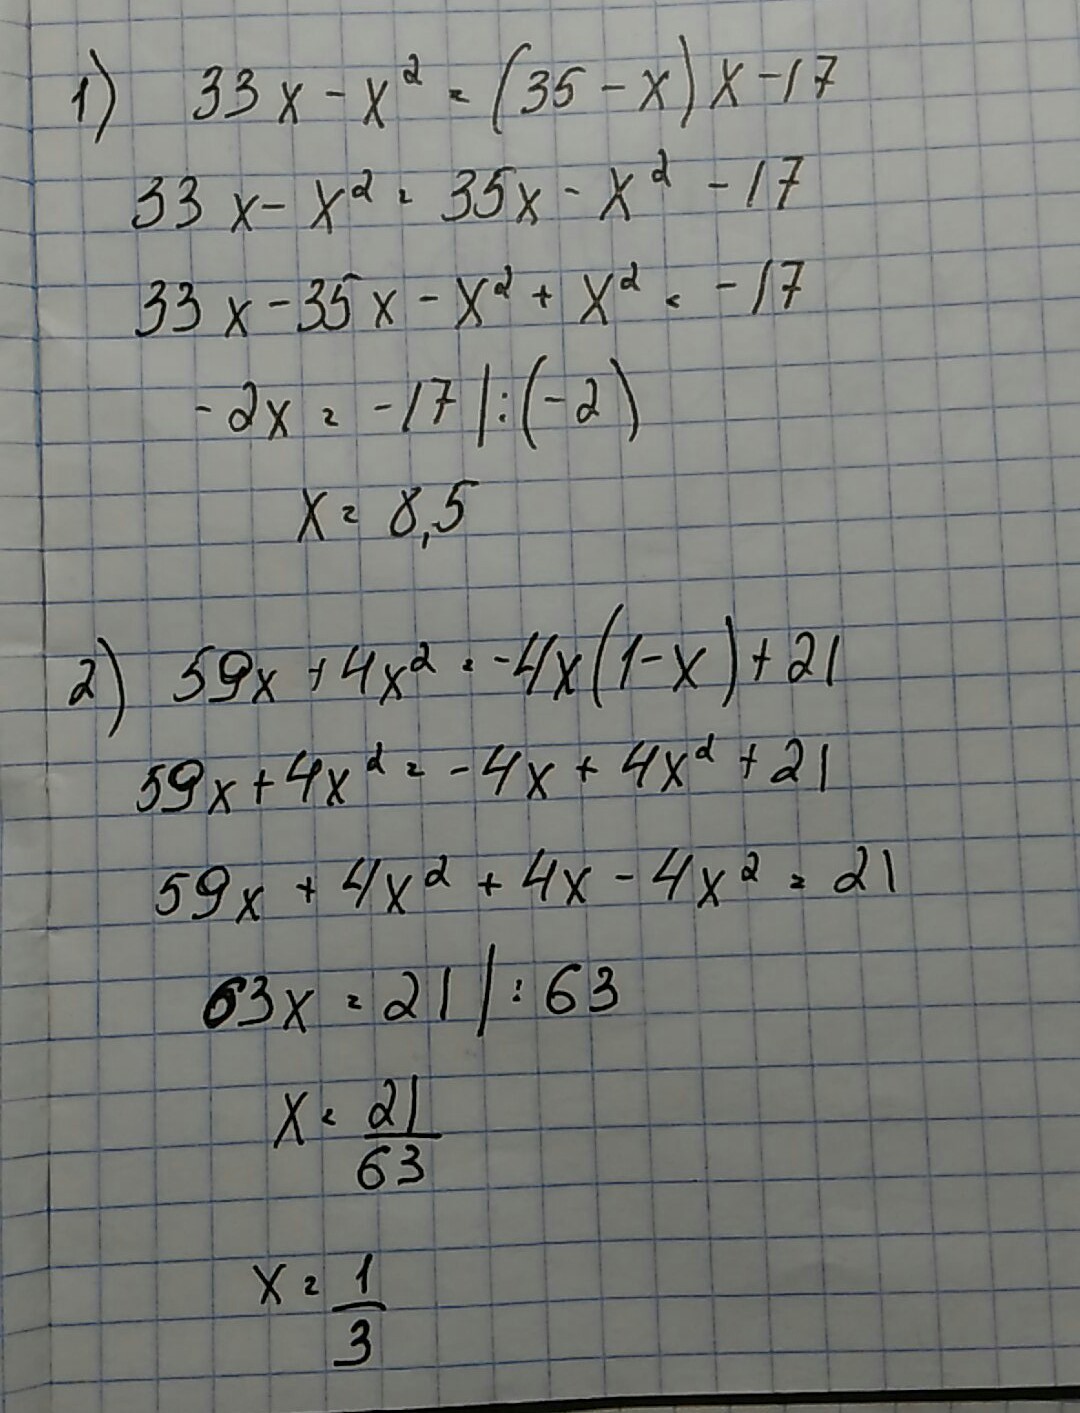 1) 33x - x² = (35 - x)x - 17
33x - x² = 35x - x² - 17
33x - 35x - x² + x² = -17
-2x = -17 |:(-2)
x = 8,5
2) 59x + 4x² = -4x(1-x) + 21
59x + 4x² = -4x + 4x² + 21
59x + 4x² + 4x - 4x² = 21
63x = 21 |: 63
x = 21/63
x = 1/3